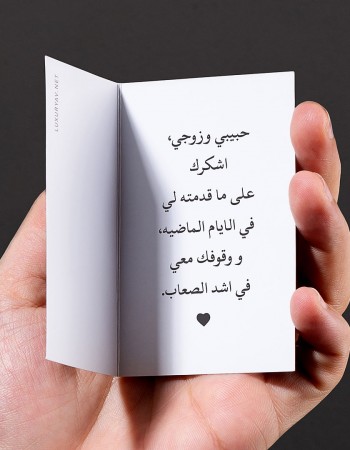 حبيبي وزوجي،
اشكرك
على ما قدمته لي
في الايام الماضيه،
و وقوفك معي
في اشد الصعاب.